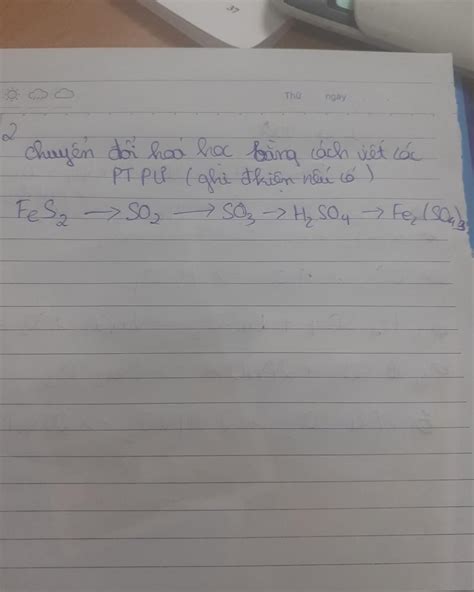 37
Thứ ngày
2
chuyển đổi hoá học bằng cách viết các
PTPƯ (ghi đkiện nếu có)
FeS₂ → SO₂ → SO₃ → H₂SO₄ → Fe₂(SO₄)₃